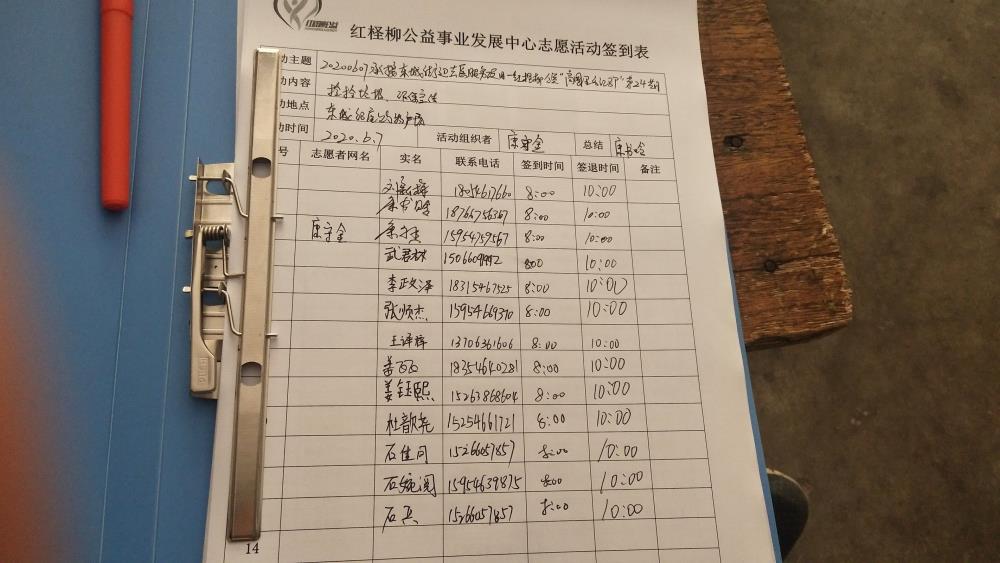 红柽柳公益事业发展中心志愿活动签到表
动主题 20200607
动内容 捡拾垃圾、环保宣传
动地点 东城
动时间 2020.6.7 活动组织者 康守全 总结
号 志愿者网名 实名 联系电话 签到时间 签退时间 备注
18054617660 8:00 10:00
18766756367 8:00 10:00
康守全 15954759567 8:00 10:00
武君林 8:00 10:00
李政泽 18315467525 8:00 10:00
张顺杰 15954669370 8:00 10:00
王译梓 13706361606 8:00 10:00
18254640281 8:00 10:00
姜钰熙 15263868604 8:00 10:00
杜歆尧 15254661721 8:00 10:00
石佳同 15266057857 8:00 10:00
石婉润 15954639875 8:00 10:00
石兵 15266057857 8:00 10:00
14